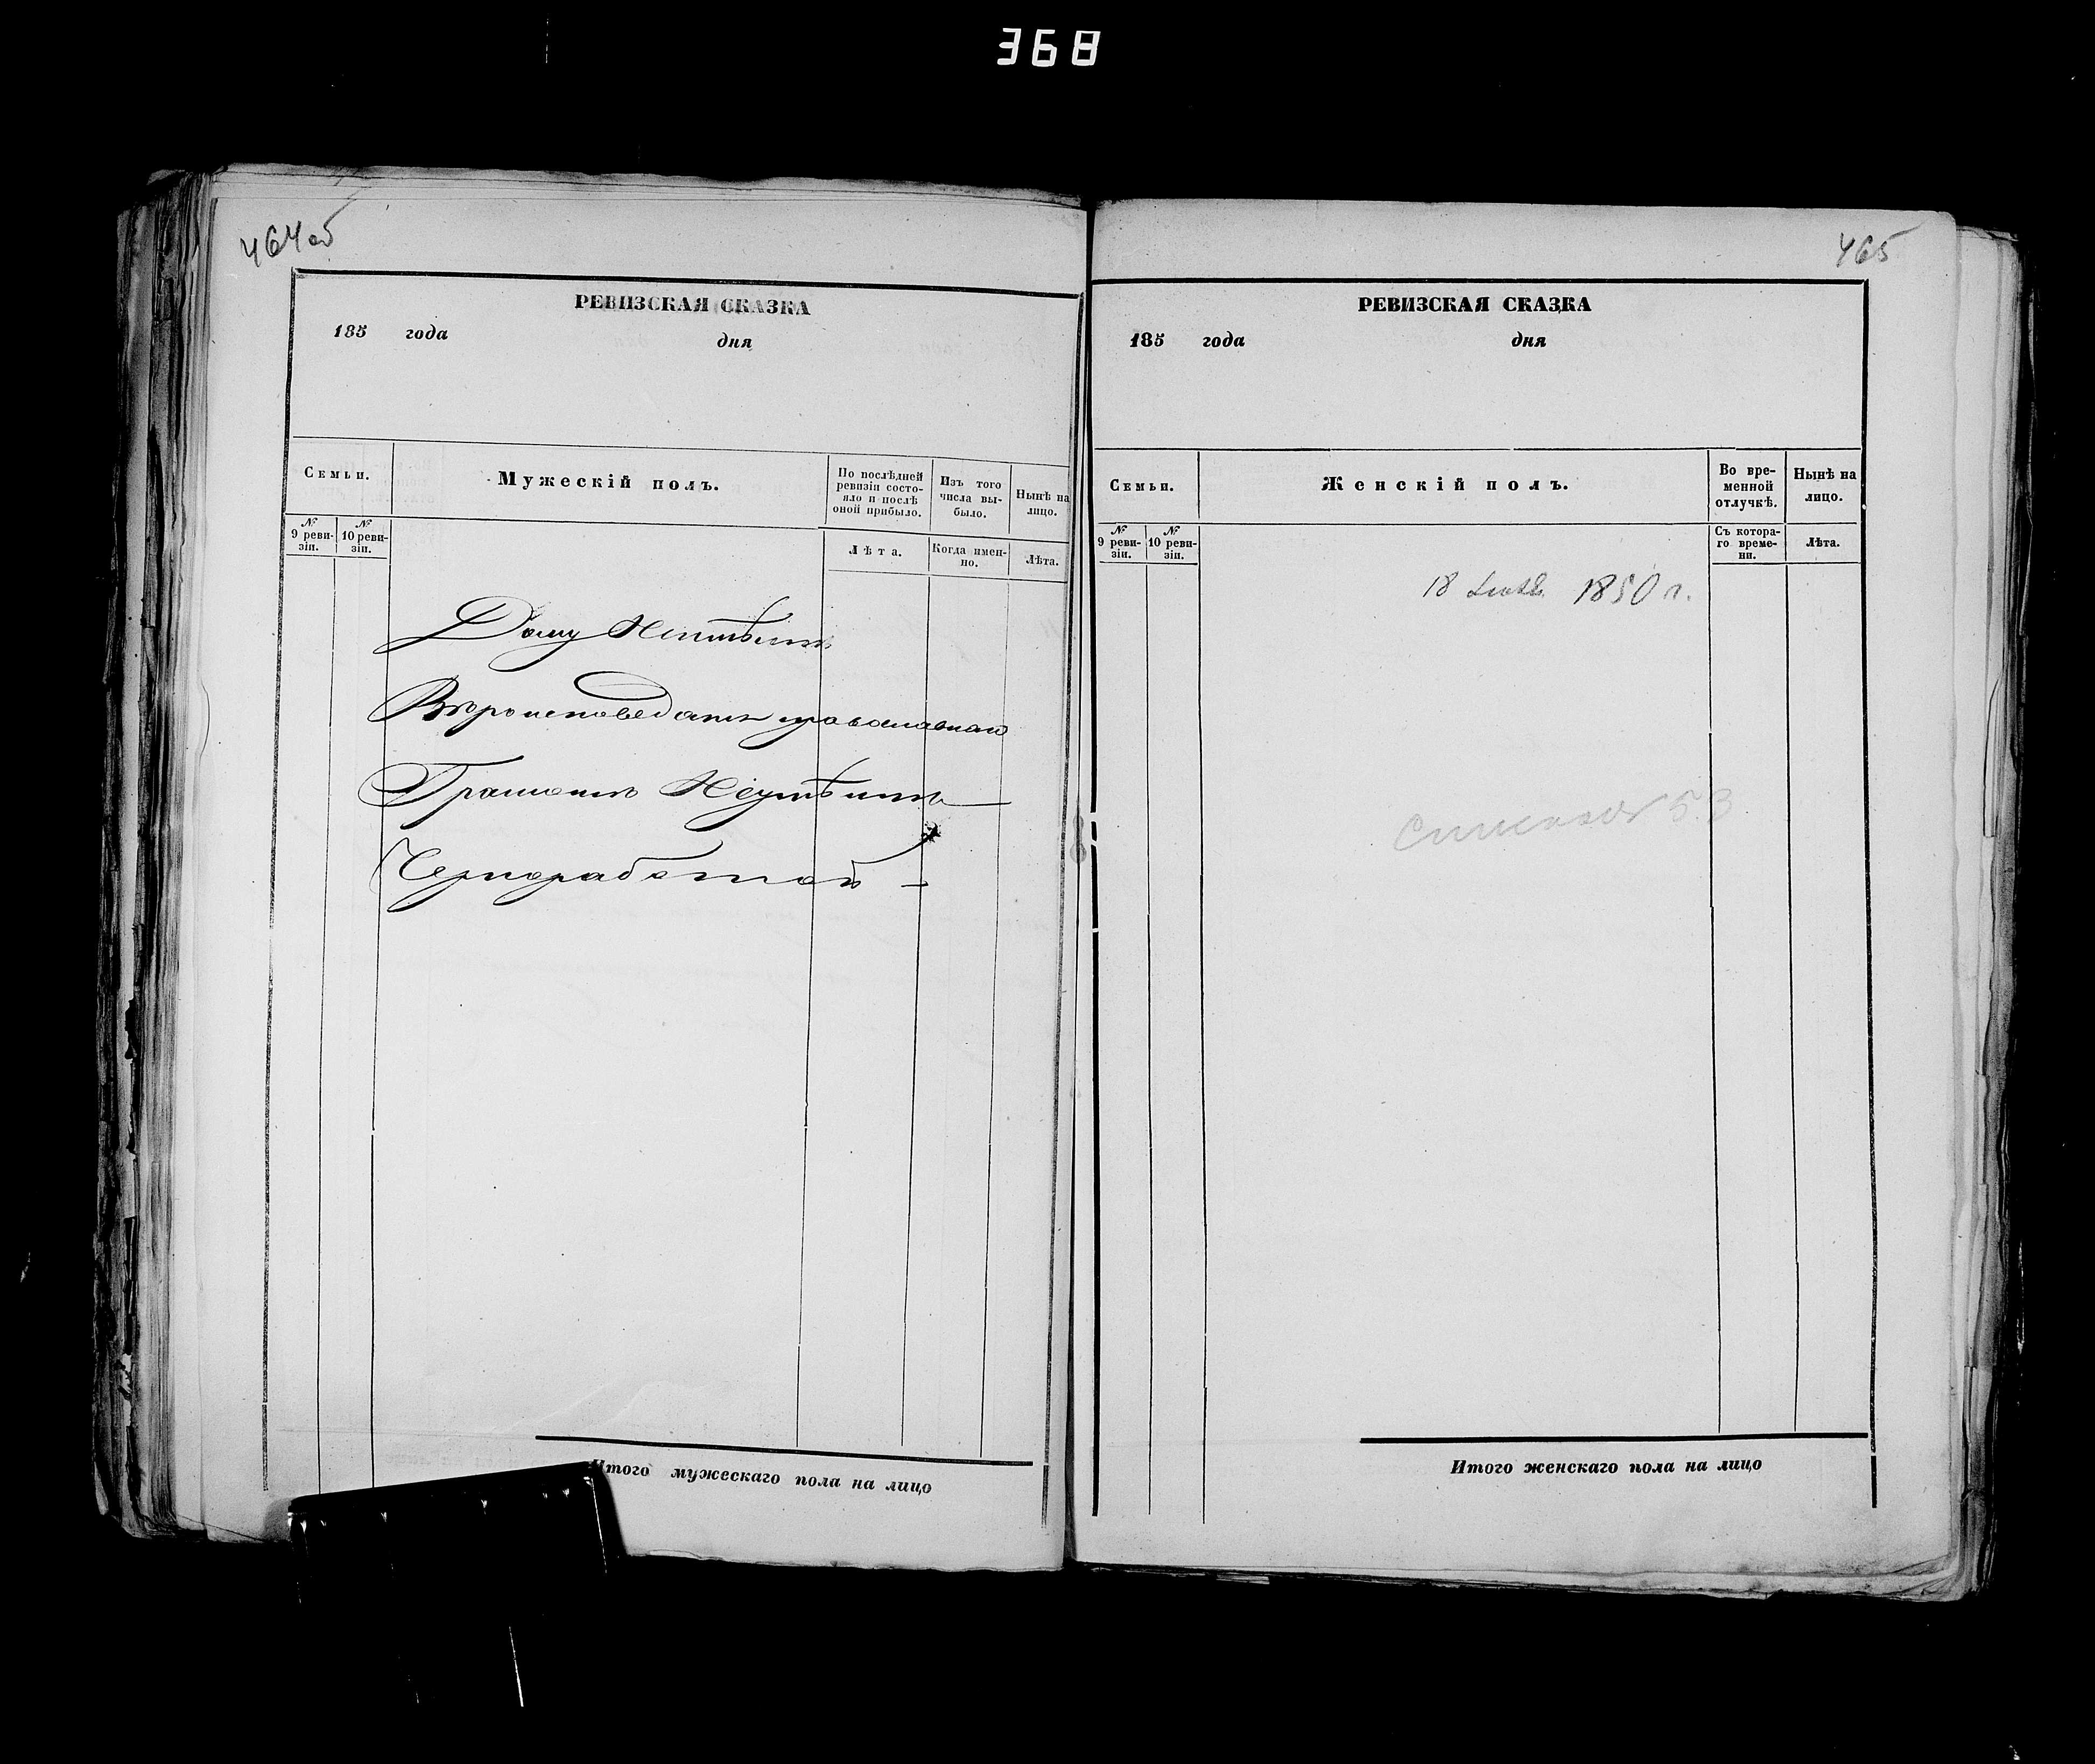 368
464об
РЕВИЗСКАЯ СКАЗКА
185 года дня
Семьи.
Мужескій полъ.
По послѣдней ревизіи состо-
яло и послѣ оной прибыло.
Изъ того числа вы-
было.
Нынѣ на лицо.
№ 9 реви-
зіи.
№ 10 реви-
зіи.
Лѣта.
Когда имен-
но.
Лѣта.
Дому Неимѣетъ
Вѣроисповеданія православнаго
Грамотѣ Неумѣетъ
Чернорабочей
Итого мужескаго пола на лицо
465
РЕВИЗСКАЯ СКАЗКА
185 года дня
Семьи.
Женскій полъ.
Во вре-
менной
отлучкѣ.
Нынѣ на
лицо.
№ 9 реви-
зіи.
№ 10 реви-
зіи.
Съ котора-
го време-
ни.
Лѣта.
18 1850 г.
53
Итого женскаго пола на лицо